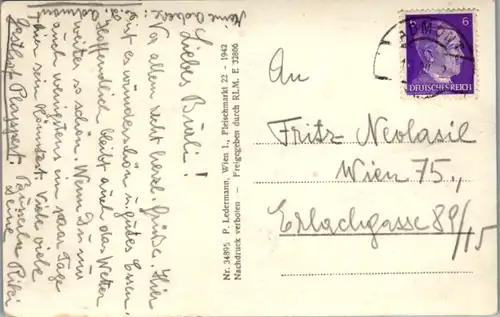 Meine Adresse!
Liebes Burli!
Vor allem recht herzl. Grüße. Hier
ist es wunderschön u. gutes Essen.
Hoffendlich bleibt auch das Wetter
weiter so schön. Wenn Du nur
auch wenigstens ein paar Tage
hier sein könntest. Viele viele
Bußerln Deine Rikki
Gasthof Plappert
Nr. 34895 P. Ledermann, Wien I., Fleischmarkt 22 - 1942
Nachdruck verboten — Freigegeben durch RLM. E 33806
6
DEUTSCHES REICH
ADMONT
An
Fritz Neolasil
Wien 75.,
Erlachgasse 89/15